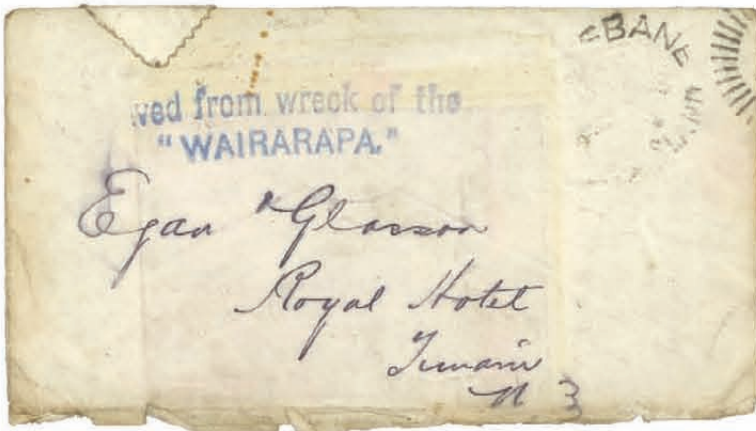 ved from wreck of the
"WAIRARAPA."
BANE
Egan & Glasson
Royal Hotel
Timaru
N Z